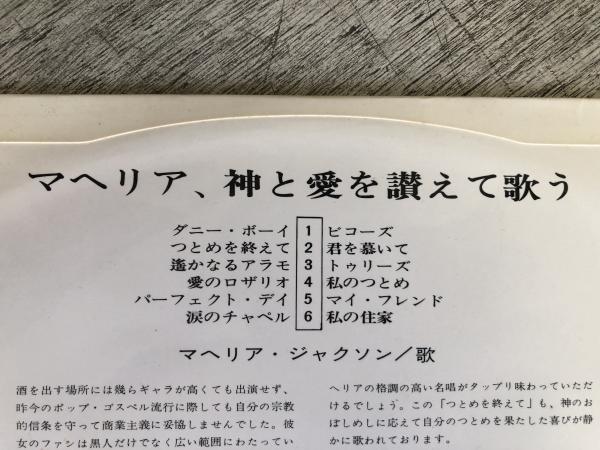 マヘリア、神と愛を讃えて歌う
ダニー・ボーイ 1 ビコーズ
つとめを終えて 2 君を慕いて
遙かなるアラモ 3 トゥリーズ
愛のロザリオ 4 私のつとめ
パーフェクト・デイ 5 マイ・フレンド
涙のチャペル 6 私の住家
マヘリア・ジャクソン/歌
酒を出す場所には幾らギャラが高くても出演せず、
昨今のポップ・ゴスペル流行に際しても自分の宗教
的信条を守って商業主義に妥協しませんでした。彼
女のファンは黒人だけでなく広い範囲にわたってい
ヘリアの格調の高い名唱がタップリ味わっていただ
けるでしょう。この「つとめを終えて」も、神のお
ぼしめしに応えて自分のつとめを果たした喜びが静
かに歌われております。